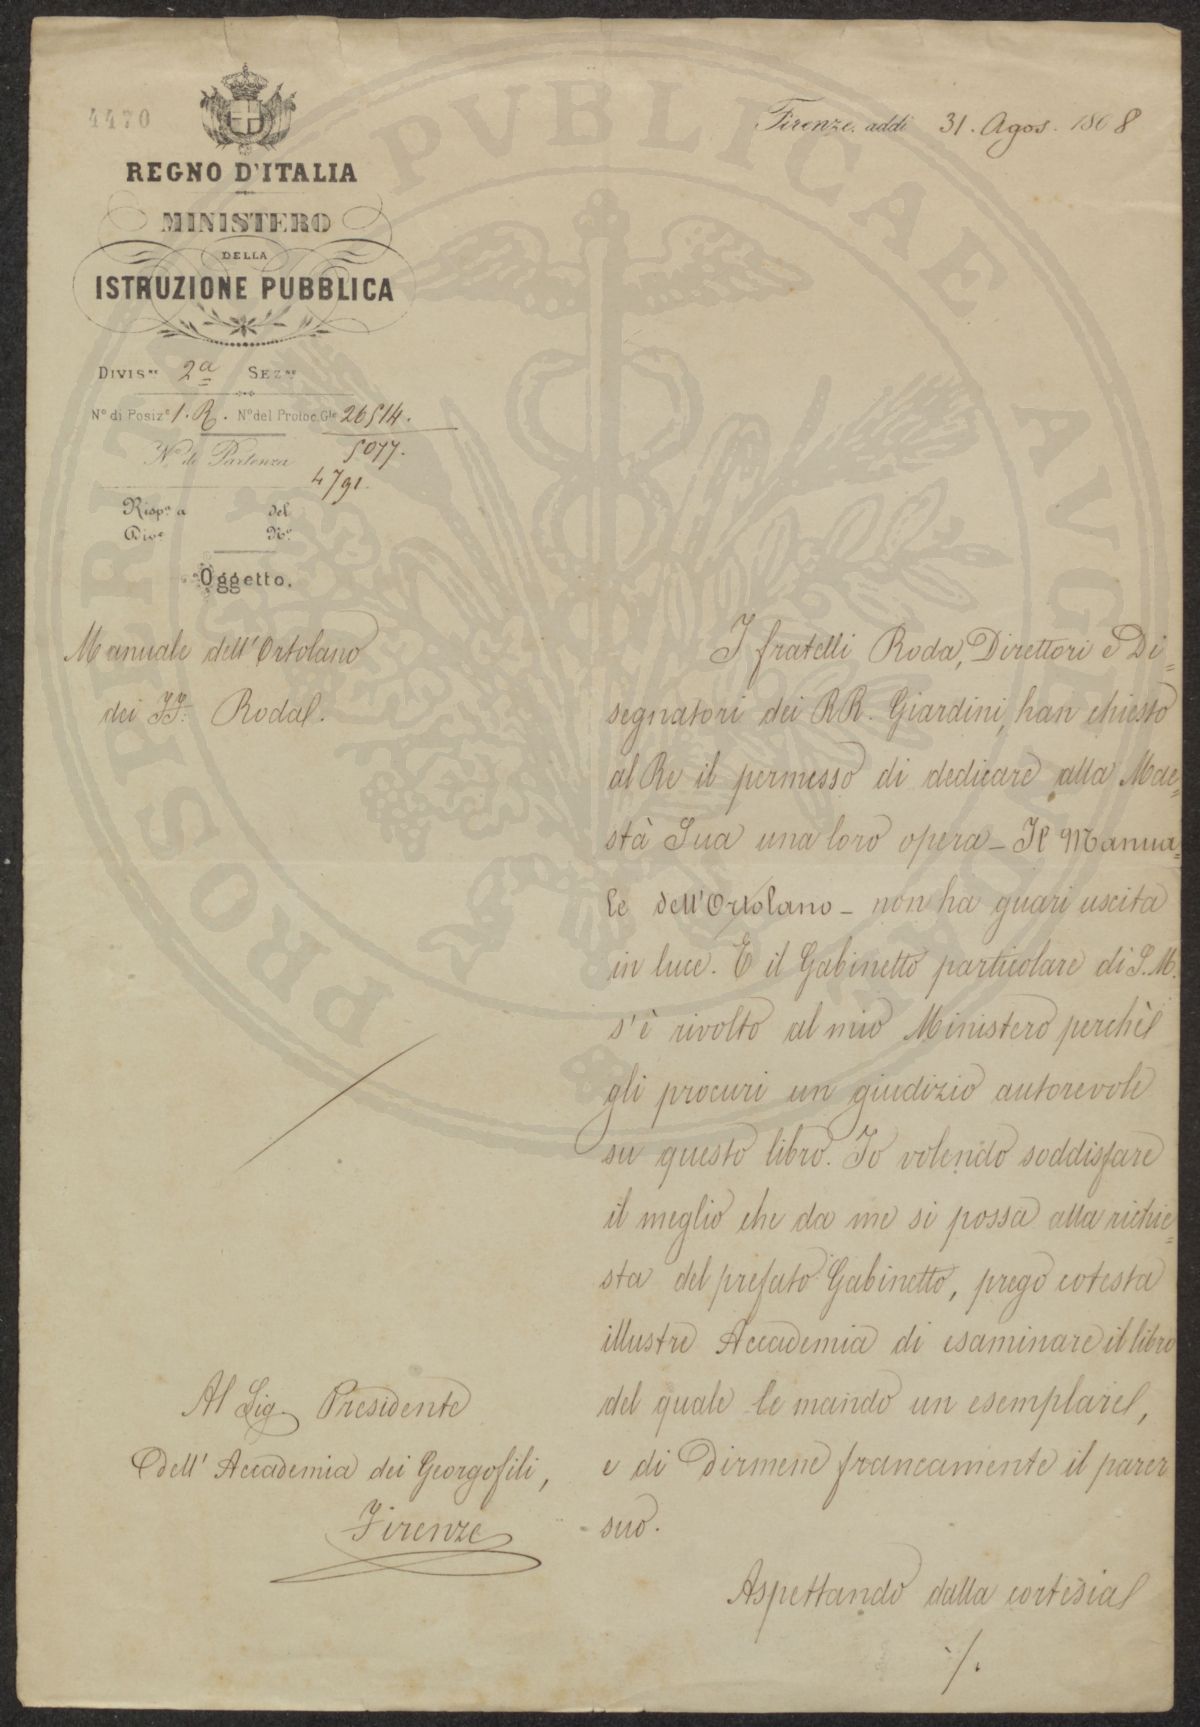 4470
Firenze, addì 31. Agos. 1868
REGNO D'ITALIA
MINISTERO
DELLA
ISTRUZIONE PUBBLICA
DIVIS.ne 2a SEZ.ne
No di Posize 1. R. No del Protoc. Gle 26514.
No di Partenza 5077.
4791.
Rispa a del
Dive No
Oggetto.
Manuale dell'Ortolano
dei FF. Roda.
I fratelli Roda, Direttori e Di=
segnatori dei RR. Giardini, han chiesto
al Re il permesso di dedicare alla Mae=
stà Sua una loro opera – Il Manua=
le dell'Ortolano – non ha guari uscita
in luce. E il Gabinetto particolare di S.M.
s'è rivolto al mio Ministero perchè
gli procuri un giudizio autorevole
su questo libro. Io volendo soddisfare
il meglio che da me si possa alla richie=
sta del prefato Gabinetto, prego cotesta
illustre Accademia di esaminare il libro
del quale le mando un esemplare,
e di dirmene francamente il parer
suo.
Aspettando dalla cortesia
./.
Al Sig. Presidente
dell'Accademia dei Georgofili,
Firenze
PROSPERITATI PVBLICAE AVGENDAE